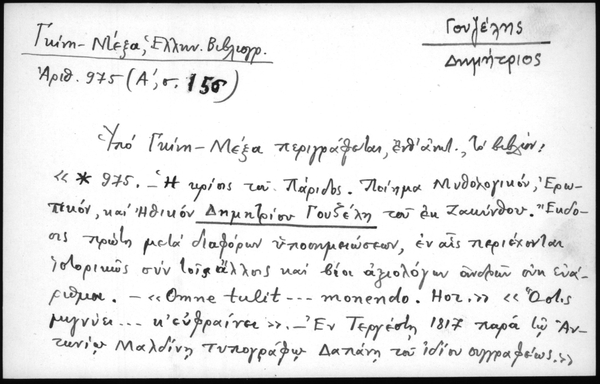 Γκίνη - Μέξα, Ἑλλην. Βιβλιογρ.
Ἀριθ. 975 (Α΄, σ. 155)
Γουζέλης
Δημήτριος
Ὑπό Γκίνη - Μέξα περιγράφεται, ἐνθ' ἀνωτ., τό βιβλίον:
« * 975. – Ἡ κρίσις τοῦ Πάριδος. Ποίημα Μυθολογικόν, Ἐρω-
τικόν, καί Ἠθικόν Δημητρίου Γουζέλη τοῦ ἐκ Ζακύνθου. Ἔκδο-
σις πρώτη μετά διαφόρων ὑποσημειώσεων, ἐν αἷς περιέχονται
ἱστορικῶς σύν τοῖς ἄλλοις καί βίοι ἀξιολόγων ἀνδρῶν οὐκ εὐά-
ριθμοι. – «Omne tulit --- monendo. Hor.» «Ὅστις
μιγνύει --- κ' εὐφραίνει». – Ἐν Τεργέστῃ 1817 παρά τῷ Ἀν-
τωνίῳ Μαλδίνῃ Τυπογράφῳ Δαπάνῃ τοῦ ἰδίου συγγραφέως.»